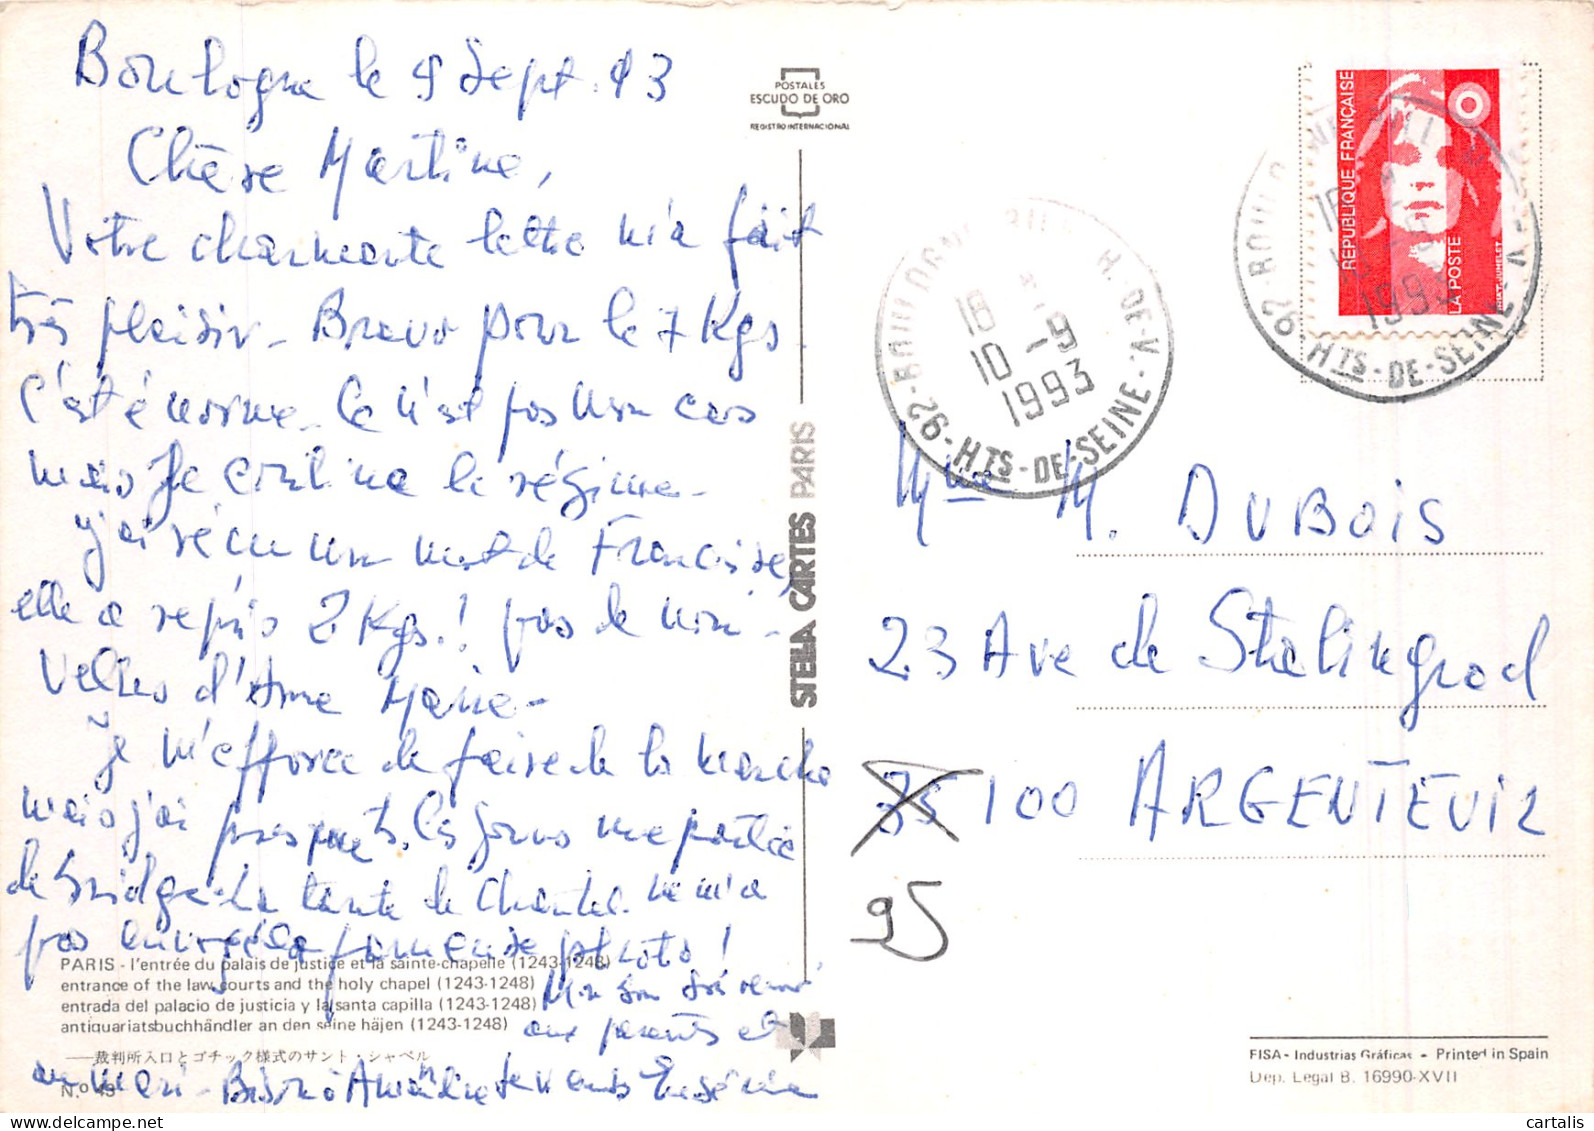 Boulogne le 9 Sept. 93
Chère Martine,
Votre charmante lettre m'a fait
très plaisir. Bravo pour le 7 Kgs.
C'est énorme. Ce n'est pas mon cas
mais je continue le régime.
J'ai reçu un mot de Françoise,
elle a repris 2 Kgs! pas de nou-
velles d'Anne Marie.
Je m'efforce de faire de la marche
mais j'ai presque ts les jours une partie
de bridge. La tante de Chantal ne m'a
pas envoyé la fameuse photo!
Mon bon souvenir
aux parents et
au mari. Bisous à Amandine et vous
PARIS - l'entrée du palais de justice et la sainte-chapelle (1243-1248)
entrance of the law courts and the holy chapel (1243-1248)
entrada del palacio de justicia y la santa capilla (1243-1248)
antiquariatsbuchhändler an den seine häjen (1243-1248)
——裁判所入口とゴチック様式のサント・シャペル
N.º 49
POSTALES
ESCUDO DE ORO
REGISTRO INTERNACIONAL
STELLA CARTES PARIS
92-BOULOGNE-BILL. HTS-DE-SEINE
18 H
10 -9
1993
REPUBLIQUE FRANÇAISE
LA POSTE
1993
92-BOULOGNE-BILL. HTS-DE-SEINE
Mme M. DUBOIS
23 Ave de Stalingrad
75100 ARGENTEUIL
95
FISA - Industrias Gráficas - Printed in Spain
Dep. Legal B. 16990-XVII
cartalis
delcampe.net